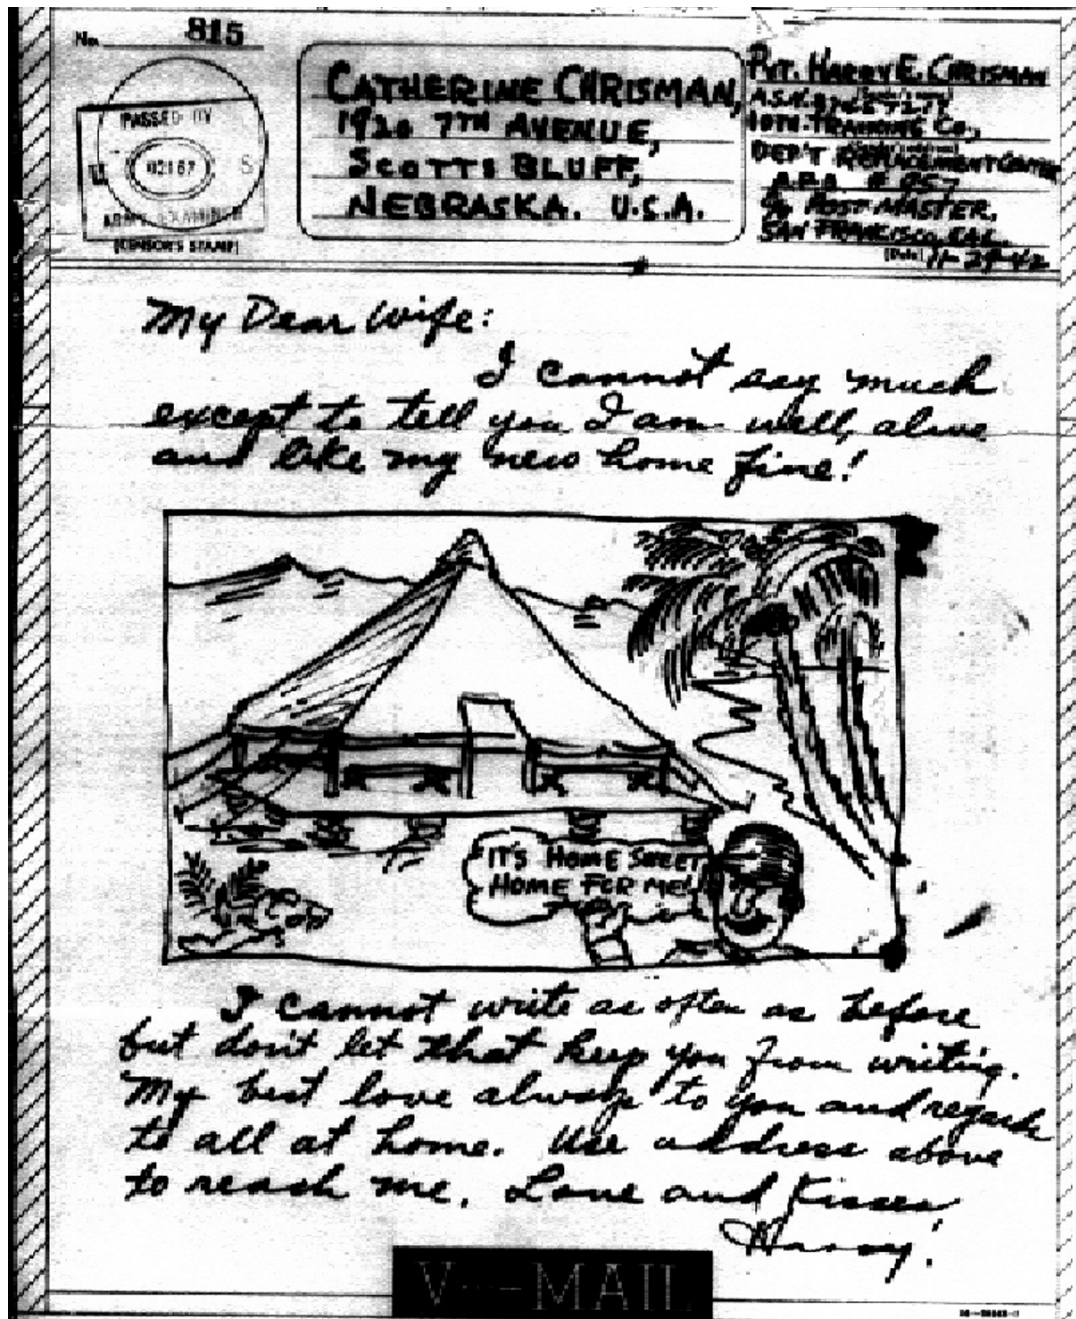 No. 815
PASSED BY
U S
02167
ARMY EXAMINER
[CENSOR'S STAMP]
CATHERINE CHRISMAN,
1920 7TH AVENUE,
SCOTTS BLUFF,
NEBRASKA. U.S.A.
PVT. HARRY E. CHRISMAN
A.S.N.
10TH. TRAINING CO.,
DEP'T REPLACEMENT CENTER
A.P.O. # 957
c/o POST MASTER,
SAN FRANCISCO, CAL.
(Date) 11-29-42
My Dear Wife:
I cannot say much
except to tell you I am well, alive
and like my new home fine!
IT'S HOME SWEET
HOME FOR ME!
I cannot write as often as before
but don't let that keep you from writing.
My best love always to you and regards
to all at home. Use address above
to reach me. Love and Kisses
Harry!
V---MAIL